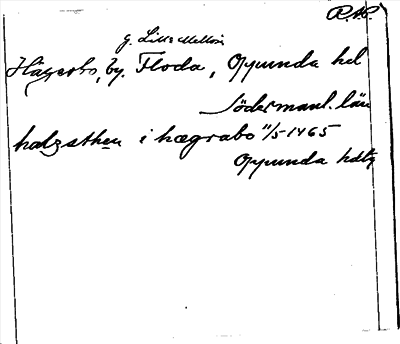 RAP.
g. Lilla Mellösa
Hägerbo, by. Floda, Oppunda hd
Södermanl. län
halzsthen i hægrabo 11/5-1465
Oppunda hdtg